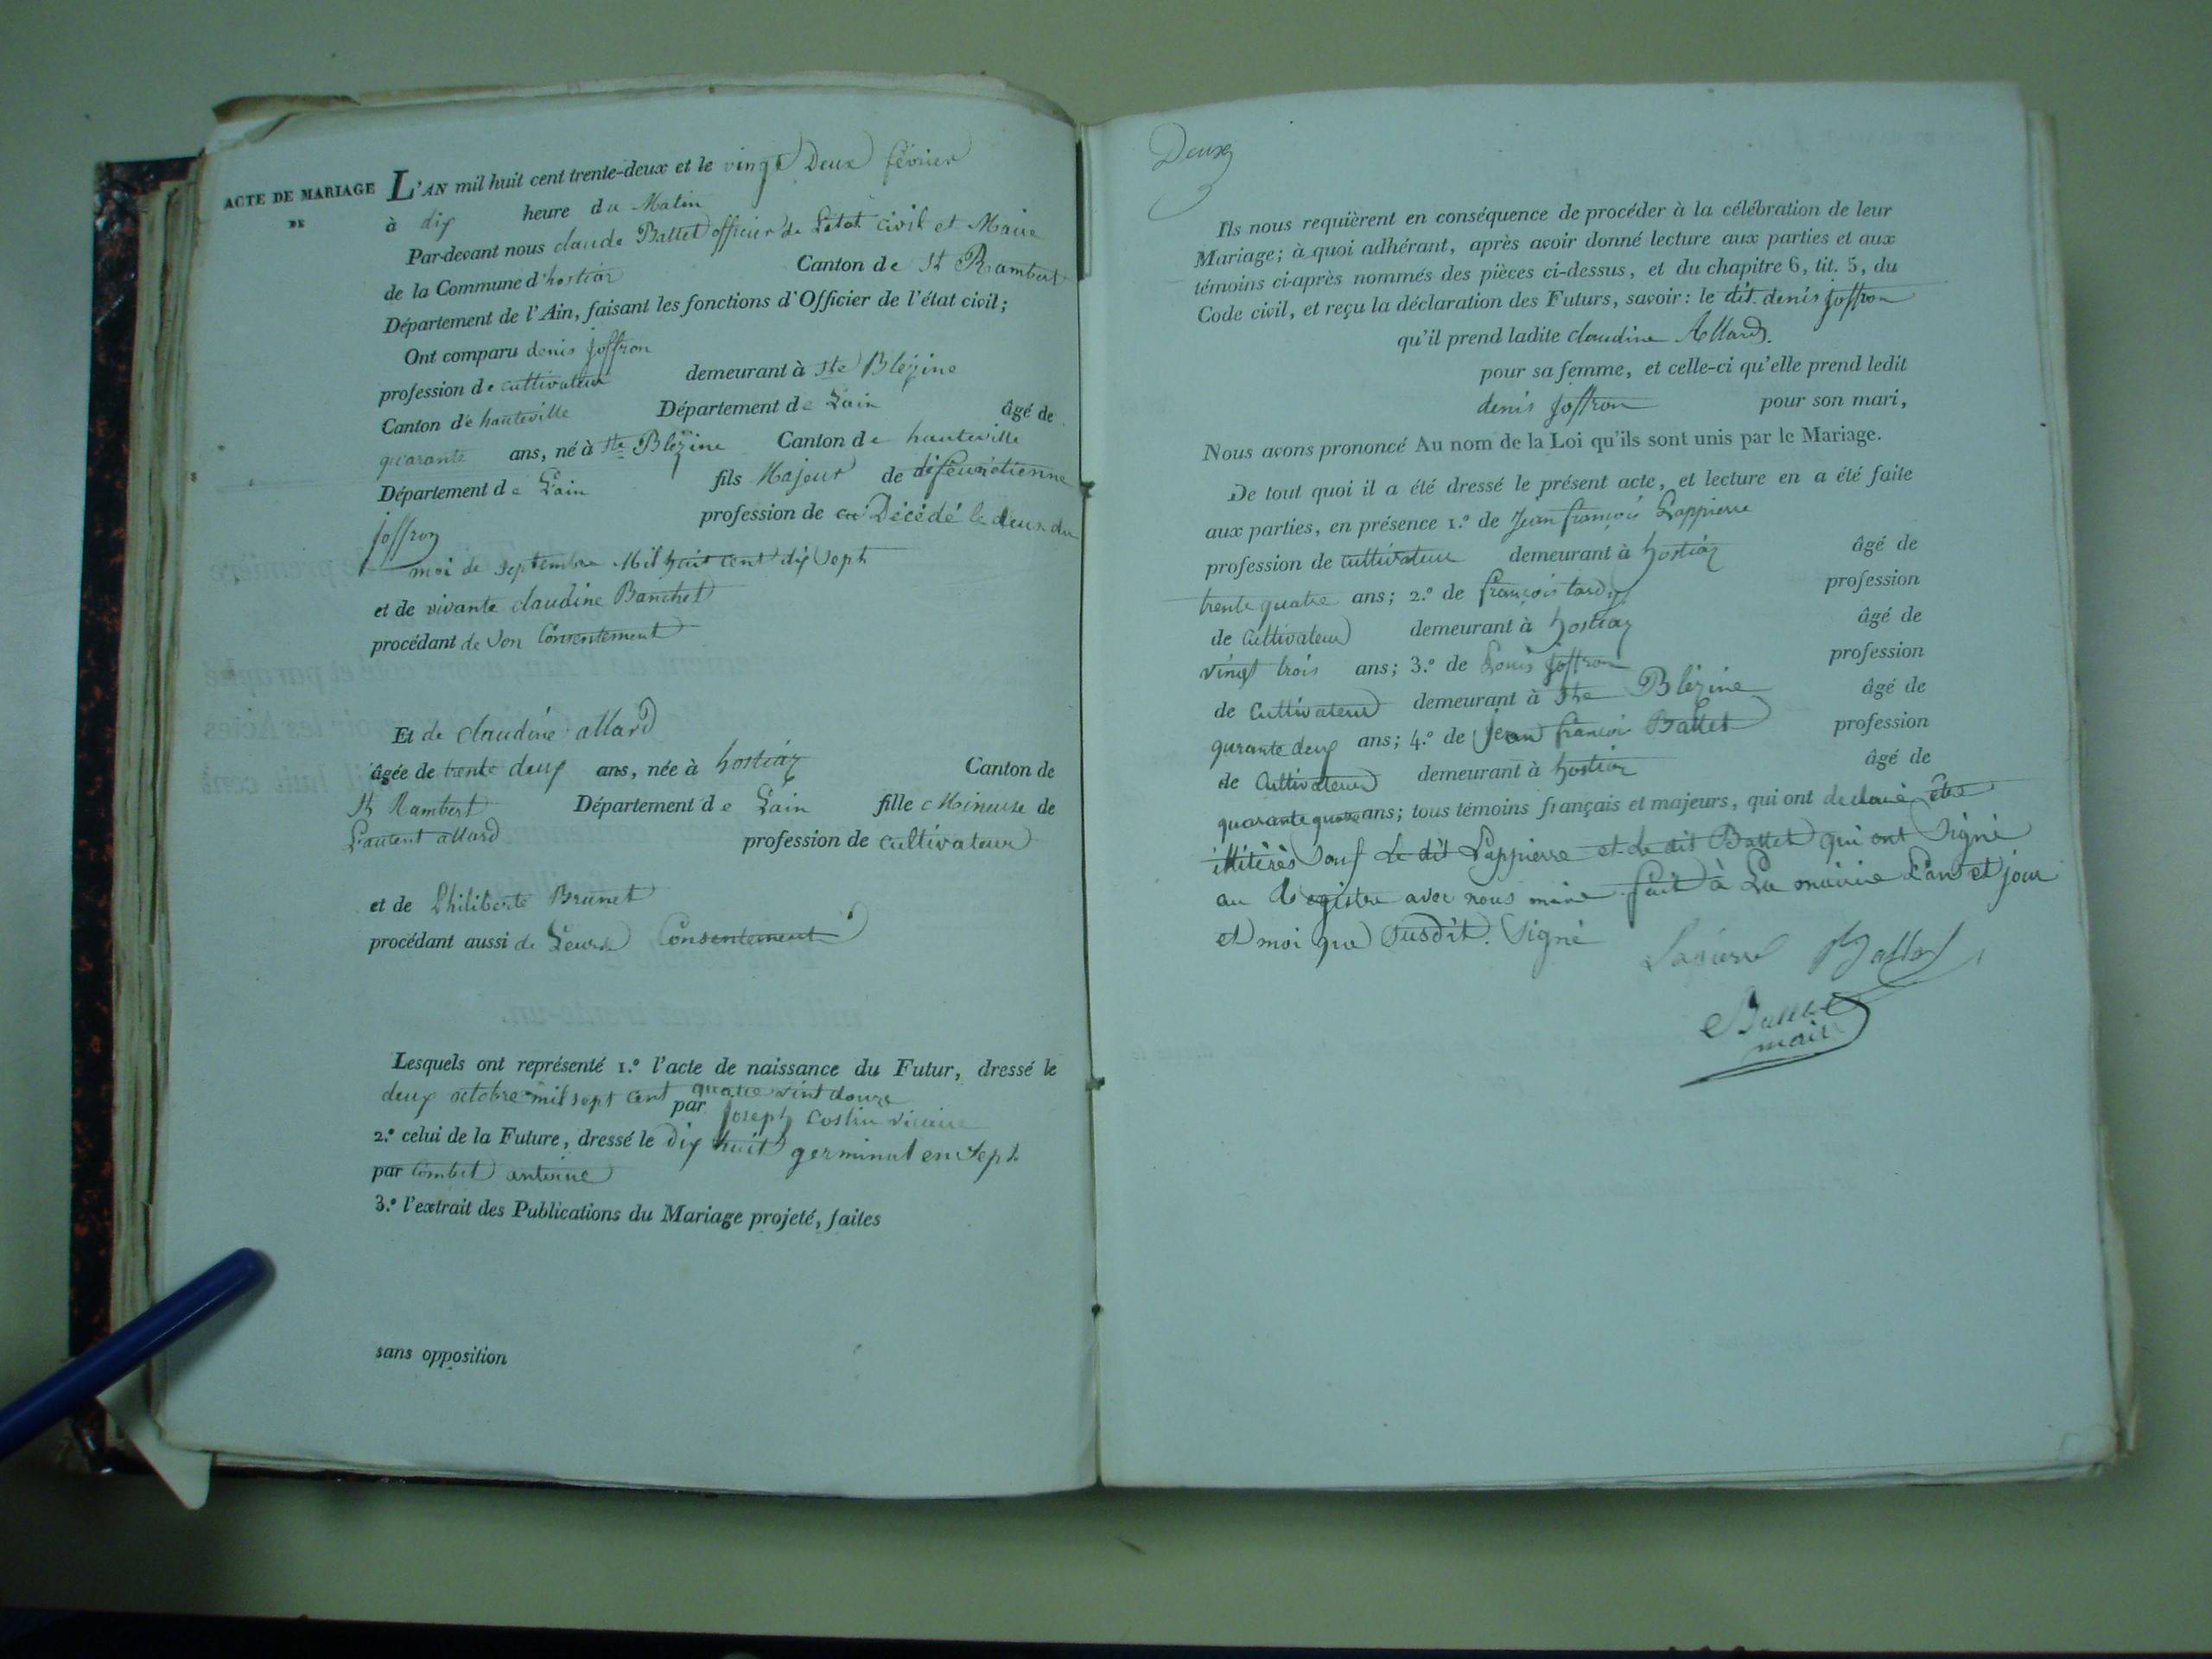 ACTE DE MARIAGE
DE
L'AN mil huit cent trente-deux et le vingt Deux février
à dix heure du Matin
Par-devant nous claude Ballet officier de Létat civil et Maire
de la Commune d'hostiaz Canton de St Rambert
Département de l'Ain, faisant les fonctions d'Officier de l'état civil;
Ont comparu denis Joffron
profession de cultivateur demeurant à Ste Blézine
Canton de hauteville Département de Lain âgé de
quarante ans, né à Ste Blézine Canton de hauteville
Département de Lain fils Majeur de etienne
joffron profession de Décédé le deux du
moi de septembre Mil huit cent dix sept
et de vivante claudine Banchet
procédant de son Consentement
Et de claudine allard
âgée de trente deux ans, née à hostiaz Canton de
St Rambert Département de Lain fille Mineure de
Laurent allard profession de cultivateur
et de Philiberte Brunet
procédant aussi de Leurs Consentement
Lesquels ont représenté 1.º l'acte de naissance du Futur, dressé le
deux octobre mil sept cent quatre vint douze
par joseph
2.º celui de la Future, dressé le dix huit germinal en sept
par Combet antoine
3.º l'extrait des Publications du Mariage projeté, faites
sans opposition
Deux
Ils nous requièrent en conséquence de procéder à la célébration de leur
Mariage; à quoi adhérant, après avoir donné lecture aux parties et aux
témoins ci-après nommés des pièces ci-dessus, et du chapitre 6, tit. 5, du
Code civil, et reçu la déclaration des Futurs, savoir: le dit denis joffron
qu'il prend ladite claudine Allard
pour sa femme, et celle-ci qu'elle prend ledit
denis joffron pour son mari,
Nous avons prononcé Au nom de la Loi qu'ils sont unis par le Mariage.
De tout quoi il a été dressé le présent acte, et lecture en a été faite
aux parties, en présence 1.º de Jean françois Lappierre
profession de cultivateur demeurant à hostiaz âgé de
trente quatre ans; 2.º de françois tardy profession
de Cultivateur demeurant à hostiaz âgé de
vingt trois ans; 3.º de Louis joffron profession
de Cultivateur demeurant à Ste Blézine âgé de
qurante deux ans; 4.º de jean francois Ballet profession
de Cultivateur demeurant à hostiaz âgé de
quarante quatre ans; tous témoins français et majeurs, qui ont declaré être
illitérés sauf Le dit Lappierre et le dit Ballet qui ont signé
au Registre avec nous maire fait à La mairie L'an et jour
et moi que susdit. signé
Lapierre Ballet
Ballet
maire